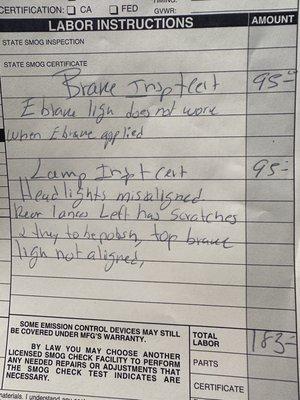 TIMING:
CERTIFICATION: CA FED GVWR:
LABOR INSTRUCTIONS AMOUNT
STATE SMOG INSPECTION
STATE SMOG CERTIFICATE
Brake Inspt cert 95-
Ebrake ligh does not work
when Ebrake applied
Lamp Inspt cert 95-
Headlights misaligned
Rear lances Left has Scratches
& they to be polish, top brake
ligh not aligned,
SOME EMISSION CONTROL DEVICES MAY STILL
BE COVERED UNDER MFG'S WARRANTY.
BY LAW YOU MAY CHOOSE ANOTHER
LICENSED SMOG CHECK FACILITY TO PERFORM
ANY NEEDED REPAIRS OR ADJUSTMENTS THAT
THE SMOG CHECK TEST INDICATES ARE
NECESSARY.
TOTAL
LABOR 183-
PARTS
CERTIFICATE
materials. I understand